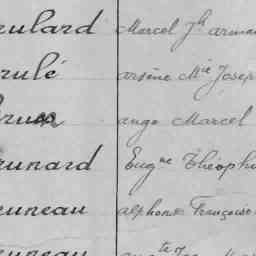 rulard Marcel Jh arman
rulé arsène Mie Josep
run ange Marcel
runard Eugne Théophi
runeau alphonse Françoise
runeau